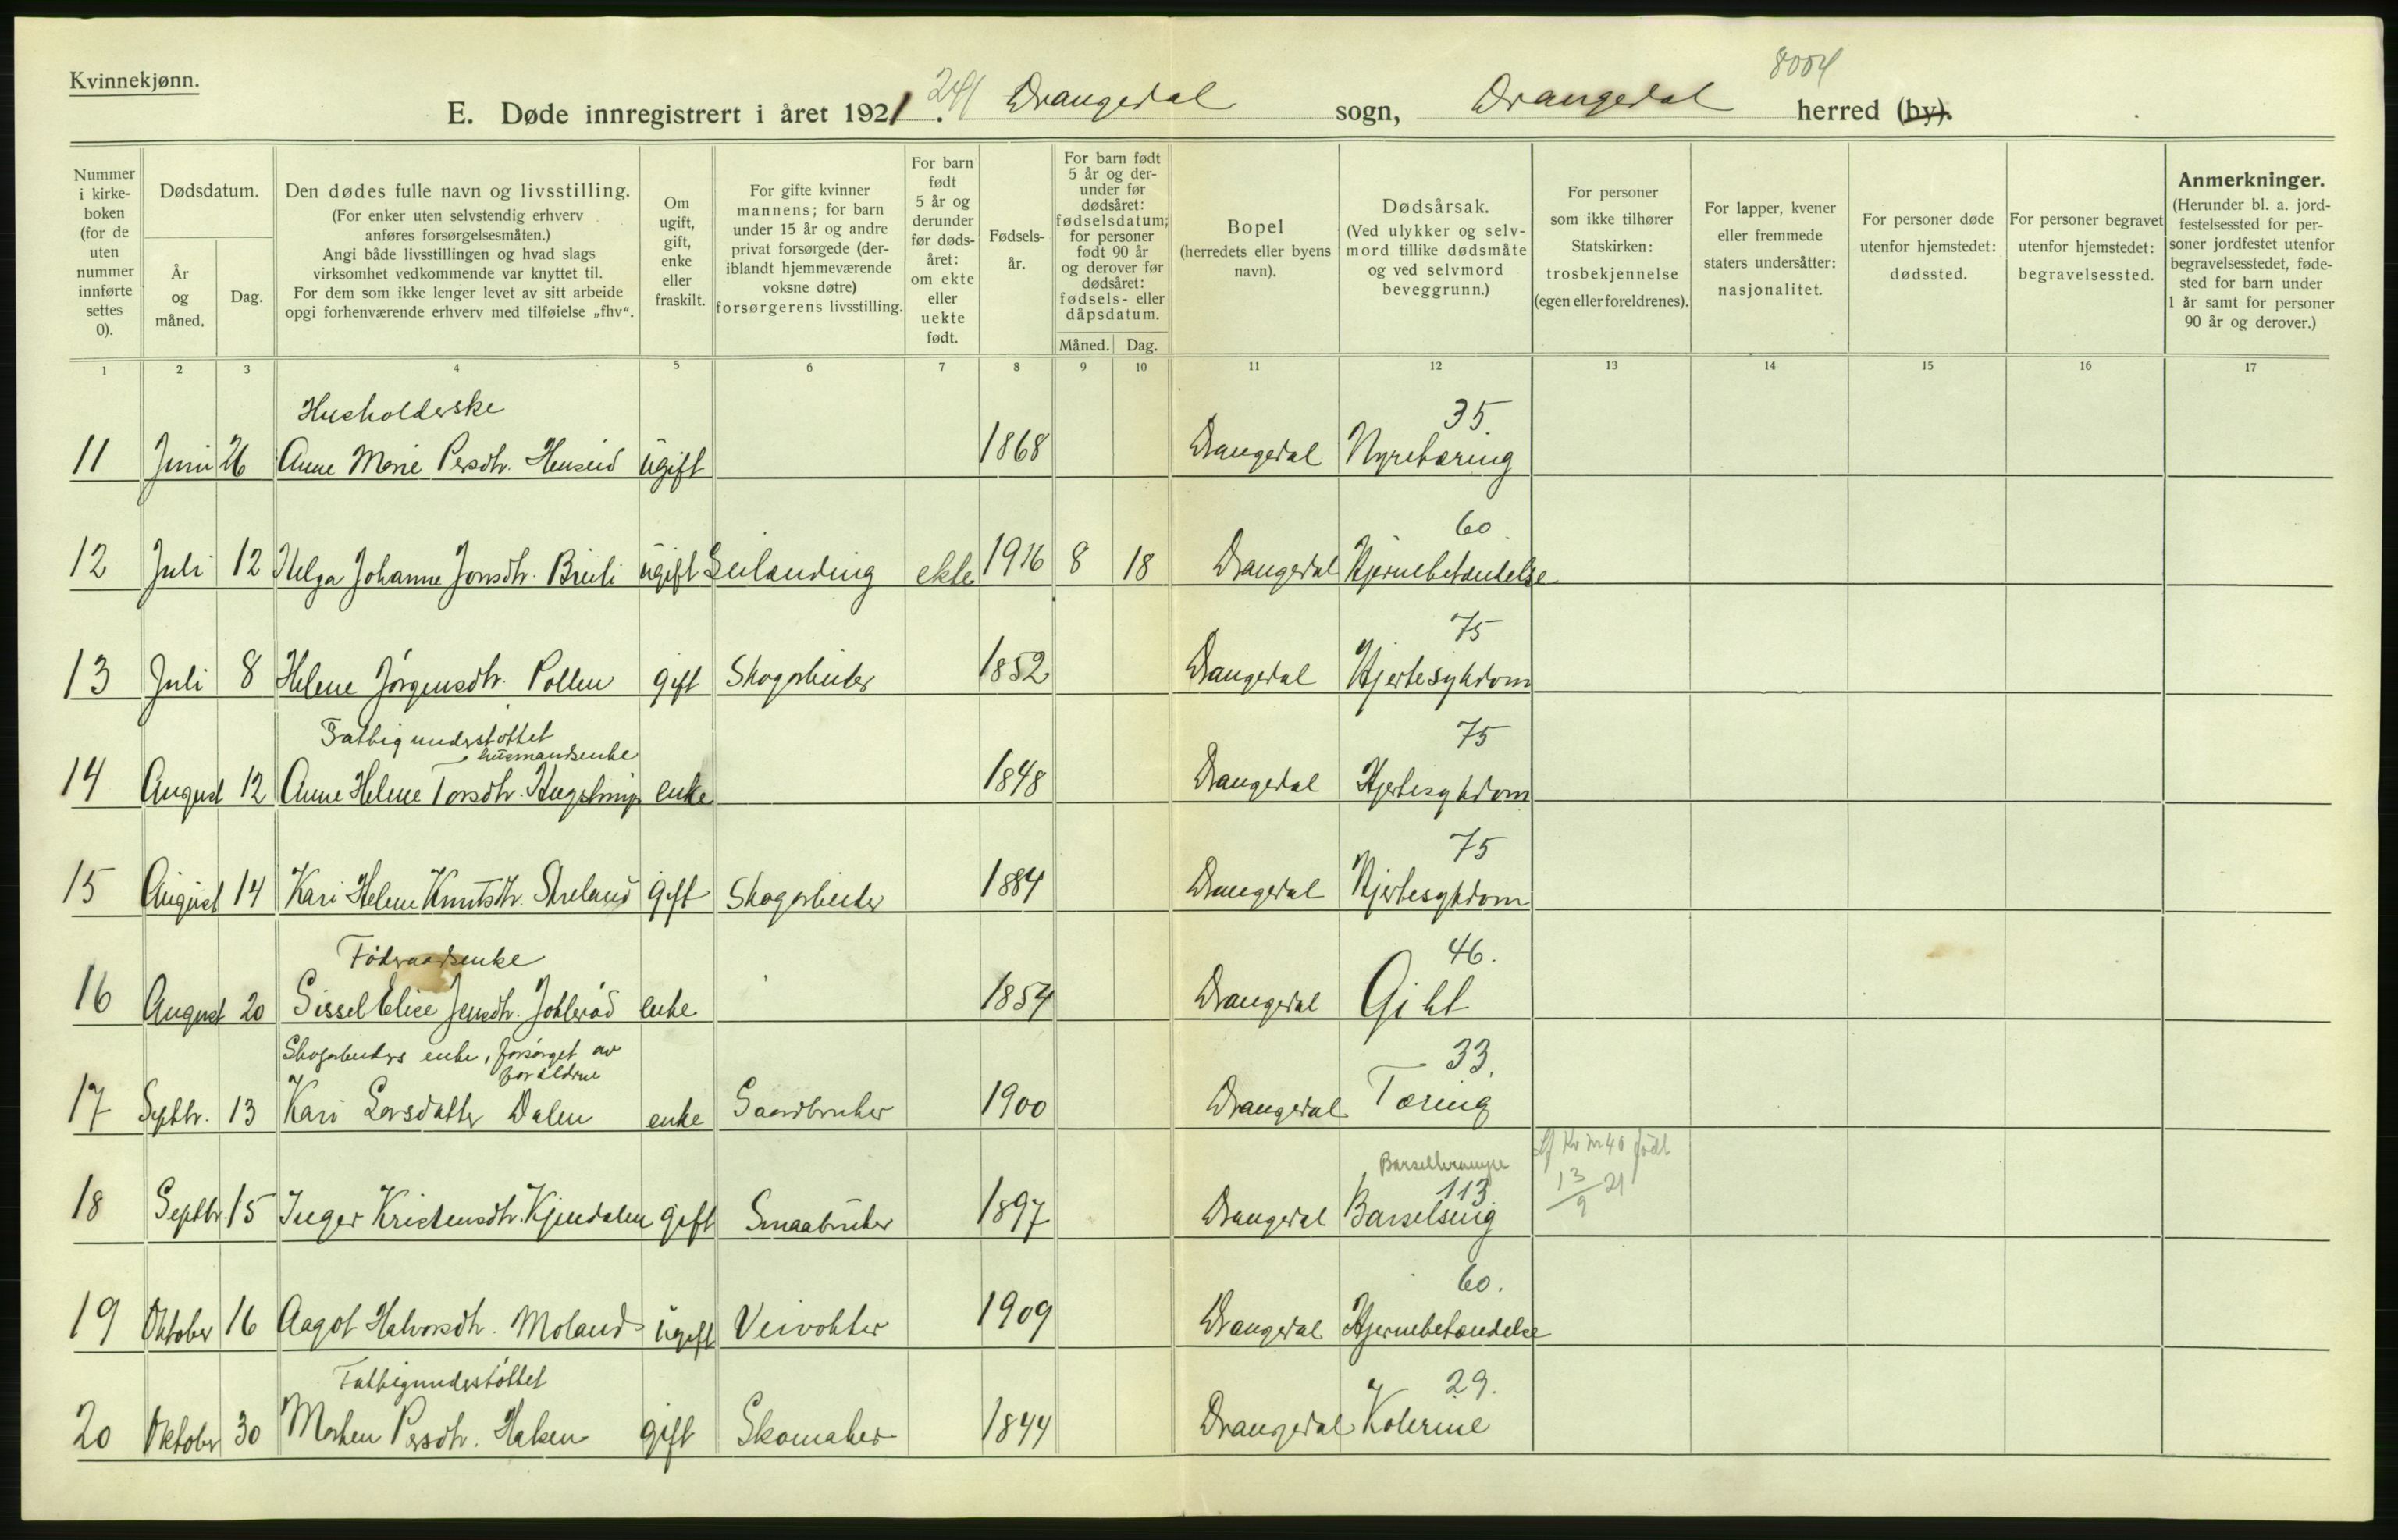 Kvinnekjønn.
E. Døde innregistrert i året 1921. 241 Drangedal sogn, Drangedal herred (by). 8004
Nummer i kirkeboken (for de uten nummer innførte settes 0).
Dødsdatum.
År og måned.
Dag.
Den dødes fulle navn og livsstilling.
(For enker uten selvstendig erhverv anføres forsørgelsesmåten.)
Angi både livsstillingen og hvad slags virksomhet vedkommende var knyttet til.
For dem som ikke lenger levet av sitt arbeide opgi forhenværende erhverv med tilføielse „fhv“.
Om ugift, gift, enke eller fraskilt.
For gifte kvinner mannens; for barn under 15 år og andre privat forsørgede (deriblandt hjemmeværende voksne døtre) forsørgerens livsstilling.
For barn født 5 år og derunder før dødsåret: om ekte eller uekte født.
Fødselsår.
For barn født 5 år og derunder før dødsåret: fødselsdatum; for personer født 90 år og derover før dødsåret: fødsels- eller dåpsdatum.
Måned. Dag.
Bopel (herredets eller byens navn).
Dødsårsak.
(Ved ulykker og selvmord tillike dødsmåte og ved selvmord beveggrunn.)
For personer som ikke tilhører Statskirken: trosbekjennelse (egen eller foreldrenes).
For lapper, kvener eller fremmede staters undersåtter: nasjonalitet.
For personer døde utenfor hjemstedet: dødssted.
For personer begravet utenfor hjemstedet: begravelsessted.
Anmerkninger.
(Herunder bl. a. jordfestelsessted for personer jordfestet utenfor begravelsesstedet, fødested for barn under 1 år samt for personer 90 år og derover.)
1 2 3 4 5 6 7 8 9 10 11 12 13 14 15 16 17
Husholderske 35.
11 Juni 26 Anne Marie Persdtr. Henseid ugift 1868 Drangedal Nyretæring
60
12 Juli 12 Helga Johanne Jonsdtr. Breili ugift Leilænding ekte 1916 8 18 Drangedal Hjernebetændelse
75
13 Juli 8 Helene Jørgensdtr. Pollen gift Skogarbeider 1852 Drangedal Hjertesykdom
Fattigunderstøttet husmandsenke 75
14 August 12 Anne Helene Torsdtr. enke 1848 Drangedal Hjertesykdom
75
15 August 14 Kari Helene Knutsdtr. gift Skogarbeider 1884 Drangedal Hjertesykdom
Føderaadsenke 46.
16 August 20 Sissel Elise Jensdtr. enke 1854 Drangedal Gikt
Skogarbeiders enke, forsørget av forældrene 33.
17 Septbr. 13 Kari Larsdatter Dalen enke Gaardbruker 1900 Drangedal Tæring
Barselkrampe 113. Lf Kv nr 40 født 13/9 21
18 Septbr. 15 Inger Kristensdtr. Kjendalen gift Smaabruker 1897 Drangedal Barselseng
60.
19 Oktober 16 Aagot Halvorsdtr. Moland ugift Veivokter 1909 Drangedal Hjernebetændelse
Fattigunderstøttet 29.
20 Oktober 30 Marken Persdtr. Haken gift Skomaker 1844 Drangedal Kolerine